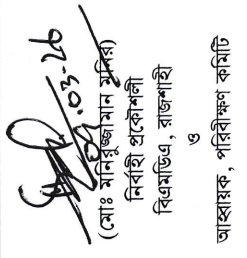 ০৯.০৩-২৬
(মোঃ মনিরুজ্জামান মনির)
নির্বাহী প্রকৌশলী
বিএমডিএ, রাজশাহী
ও
আহবায়ক, পরিবীক্ষণ কমিটি